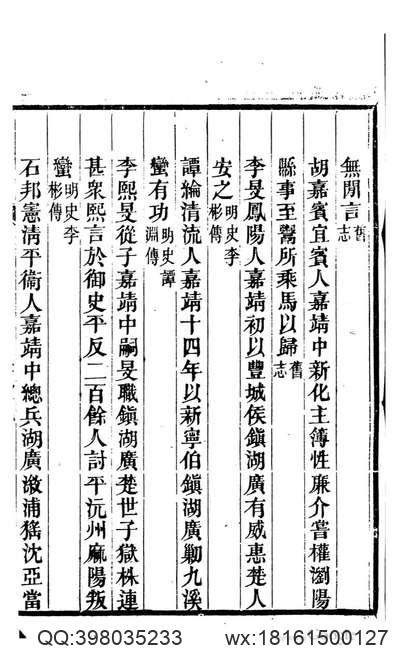 無閒言舊志
胡嘉賓宜賓人嘉靖中新化主簿性廉介嘗權瀏陽
縣事至鬻所乘馬以歸舊志
李旻鳳陽人嘉靖初以豐城侯鎮湖廣有威惠楚人
安之明史李彬傳
譚綸清流人嘉靖十四年以新寧伯鎮湖廣勦九溪
蠻有功明史譚淵傳
李熙旻從子嘉靖中嗣旻職鎮湖廣楚世子獄株連
甚衆熙言於御史平反二百餘人討平沅州麻陽叛
蠻明史李彬傳
石邦憲清平衞人嘉靖中總兵湖廣漵浦猺沈亞當
QQ:398035233 wx:18161500127